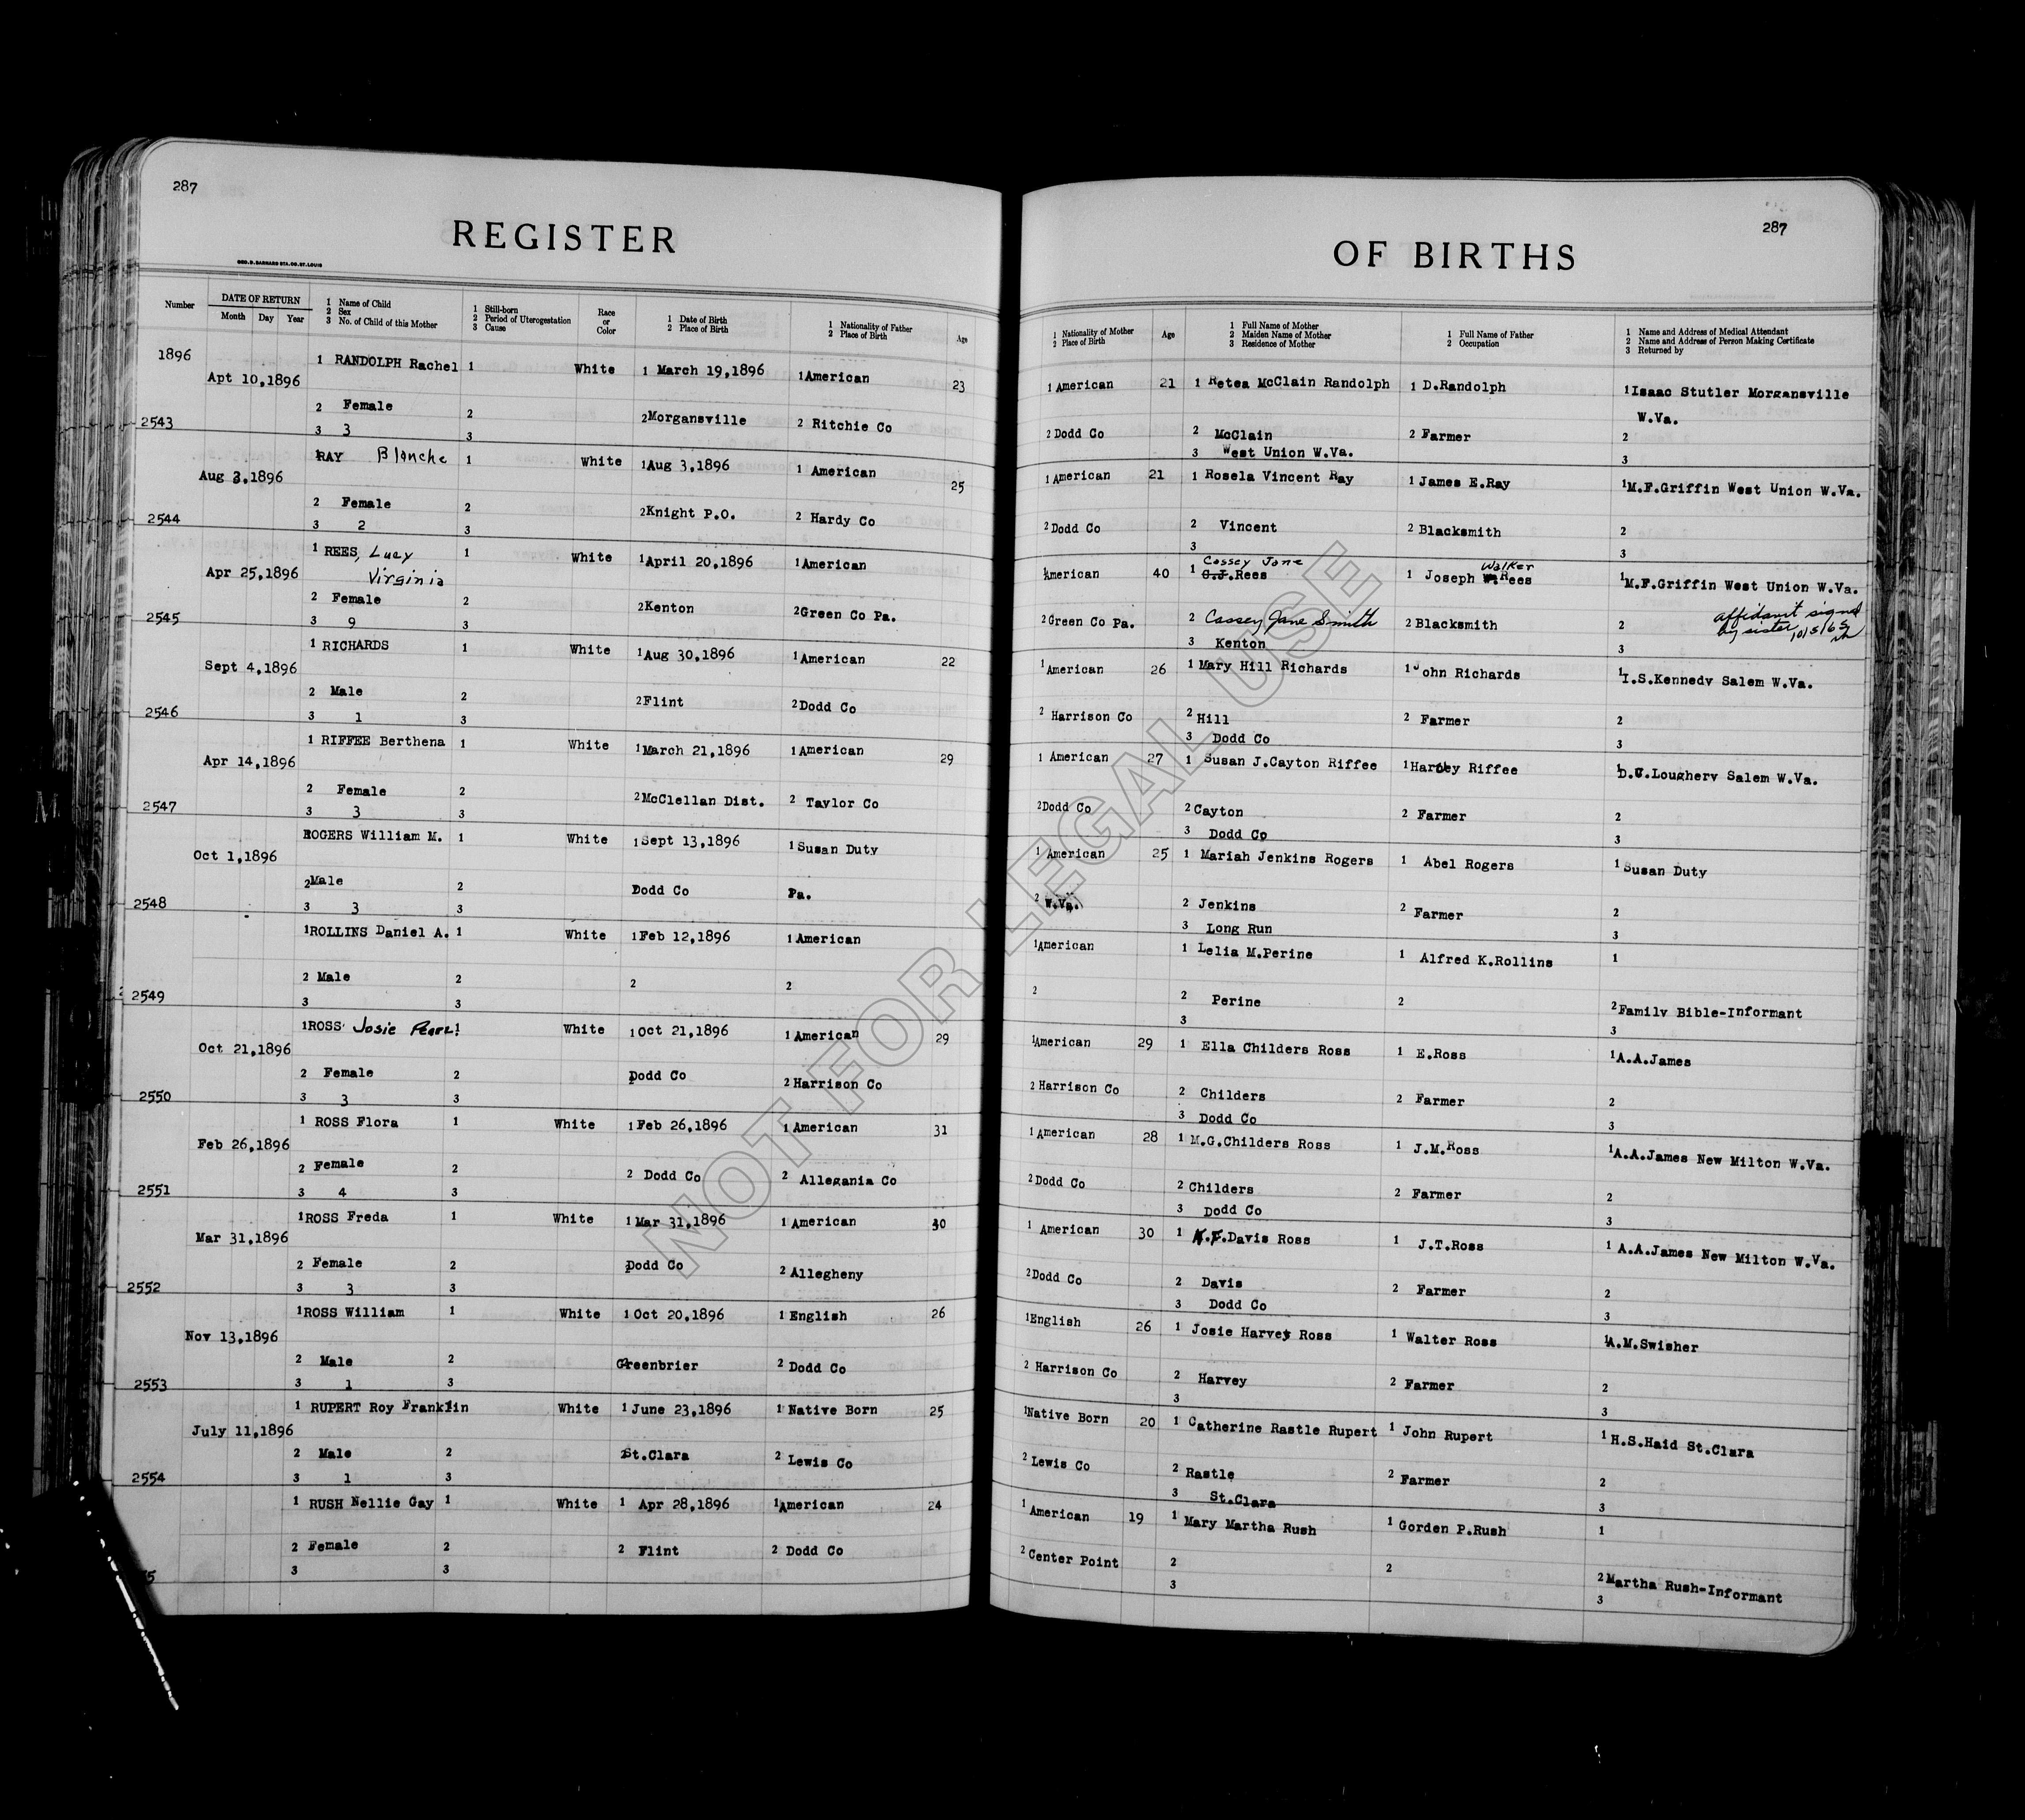 287
REGISTER
GEO. D. BARNARD STA. CO. ST. LOUIS
Number
DATE OF RETURN
Month Day Year
1 Name of Child
2 Sex
3 No. of Child of this Mother
1 Still-born
2 Period of Uterogestation
3 Cause
Race
or
Color
1 Date of Birth
2 Place of Birth
1 Nationality of Father
2 Place of Birth
Age
1896
Apt 10,1896
1 RANDOLPH Rachel 1 White 1 March 19,1896 1American 23
2 Female 2 2Morgansville 2 Ritchie Co
2543 3 3 3
1RAY Blanche 1 White 1Aug 3,1896 1 American 25
Aug 3,1896
2 Female 2 2Knight P.O. 2 Hardy Co
2544 3 2 3
1 REES, Lucy 1 White 1April 20,1896 1American
Apr 25,1896 Virginia
2 Female 2 2Kenton 2Green Co Pa.
2545 3 9 3
1 RICHARDS 1 White 1Aug 30,1896 1American 22
Sept 4,1896
2 Male 2 2Flint 2Dodd Co
2546 3 1 3
1 RIFFEE Berthena 1 White 1March 21,1896 1American 29
Apr 14,1896
2 Female 2 2McClellan Dist. 2 Taylor Co
2547 3 3 3
ROGERS William M. 1 White 1Sept 13,1896 1Susan Duty
Oct 1,1896
2Male 2 Dodd Co Pa.
2548 3 3 3
1ROLLINS Daniel A. 1 White 1Feb 12,1896 1American
2 Male 2 2 2
2549 3 3
1ROSS Josie Pearl 1 White 1Oct 21,1896 1American 29
Oct 21,1896
2 Female 2 Dodd Co 2Harrison Co
2550 3 3 3
1 ROSS Flora 1 White 1Feb 26,1896 1American 31
Feb 26,1896
2 Female 2 2 Dodd Co 2 Allegania Co
2551 3 4 3
1ROSS Freda 1 White 1Mar 31,1896 1American 30
Mar 31,1896
2 Female 2 Dodd Co 2Allegheny
2552 3 3 3
1ROSS William 1 White 1Oct 20,1896 1English 26
Nov 13,1896
2 Male 2 Greenbrier 2 Dodd Co
2553 3 1 3
1 RUPERT Roy Franklin White 1June 23,1896 1Native Born 25
July 11,1896
2 Male 2 St.Clara 2 Lewis Co
2554 3 1 3
1 RUSH Nellie Gay 1 White 1 Apr 28,1896 1American 24
2 Female 2 2 Flint 2 Dodd Co
3 3
287
OF BIRTHS
1 Nationality of Mother
2 Place of Birth
Age
1 Full Name of Mother
2 Maiden Name of Mother
3 Residence of Mother
1 Full Name of Father
2 Occupation
1 Name and Address of Medical Attendant
2 Name and Address of Person Making Certificate
3 Returned by
1 American 21 1 Retea McClain Randolph 1 D.Randolph 1Isaac Stutler Morgansville
W.Va.
2 Dodd Co 2 McClain 2 Farmer 2
3 West Union W.Va. 3
1 American 21 1 Rosela Vincent Ray 1 James E.Ray 1M.F.Griffin West Union W.Va.
2 Dodd Co 2 Vincent 2 Blacksmith 2
3 3
Cassey Jane Walker
1American 40 1 C.J.Rees 1 Joseph W.Rees 1M.F.Griffin West Union W.Va.
affidavit signed
2Green Co Pa. 2 Cassey Jane Smith 2 Blacksmith 2 by sister 10/5/65
3 Kenton 3
1American 26 1 Mary Hill Richards 1John Richards 1I.S.Kennedy Salem W.Va.
2 Harrison Co 2 Hill 2 Farmer 2
3 Dodd Co 3
1 American 27 1 Susan J.Cayton Riffee 1Harvey Riffee 1D.C.Loughery Salem W.Va.
2Dodd Co 2Cayton 2 Farmer 2
3 Dodd Co 3
1 American 25 1 Mariah Jenkins Rogers 1 Abel Rogers 1 Susan Duty
2 W.Va. 2 Jenkins 2 Farmer 2
3 Long Run 3
1American 1 Lelia M.Perine 1 Alfred K.Rollins 1
2 2 Perine 2 2Family Bible-Informant
3 3
1American 29 1 Ella Childers Ross 1 E.Ross 1A.A.James
2 Harrison Co 2 Childers 2 Farmer 2
3 Dodd Co 3
1American 28 1 M.G.Childers Ross 1 J.M.Ross 1A.A.James New Milton W.Va.
2Dodd Co 2 Childers 2 Farmer 2
3 Dodd Co 3
1 American 30 1 Davis Ross 1 J.T.Ross 1 A.A.James New Milton W.Va.
2Dodd Co 2 Davis 2 Farmer 2
3 Dodd Co 3
1English 26 1 Josie Harvey Ross 1 Walter Ross 1A.M.Swisher
2 Harrison Co 2 Harvey 2 Farmer 2
3 3
1Native Born 20 1 Catherine Rastle Rupert 1 John Rupert 1 H.S.Haid St.Clara
2 Lewis Co 2 Rastle 2 Farmer 2
3 St.Clara 3
1 American 19 1 Mary Martha Rush 1 Gorden P.Rush 1
2 Center Point 2 2 2Martha Rush-Informant
3 3
NOT FOR LEGAL USE